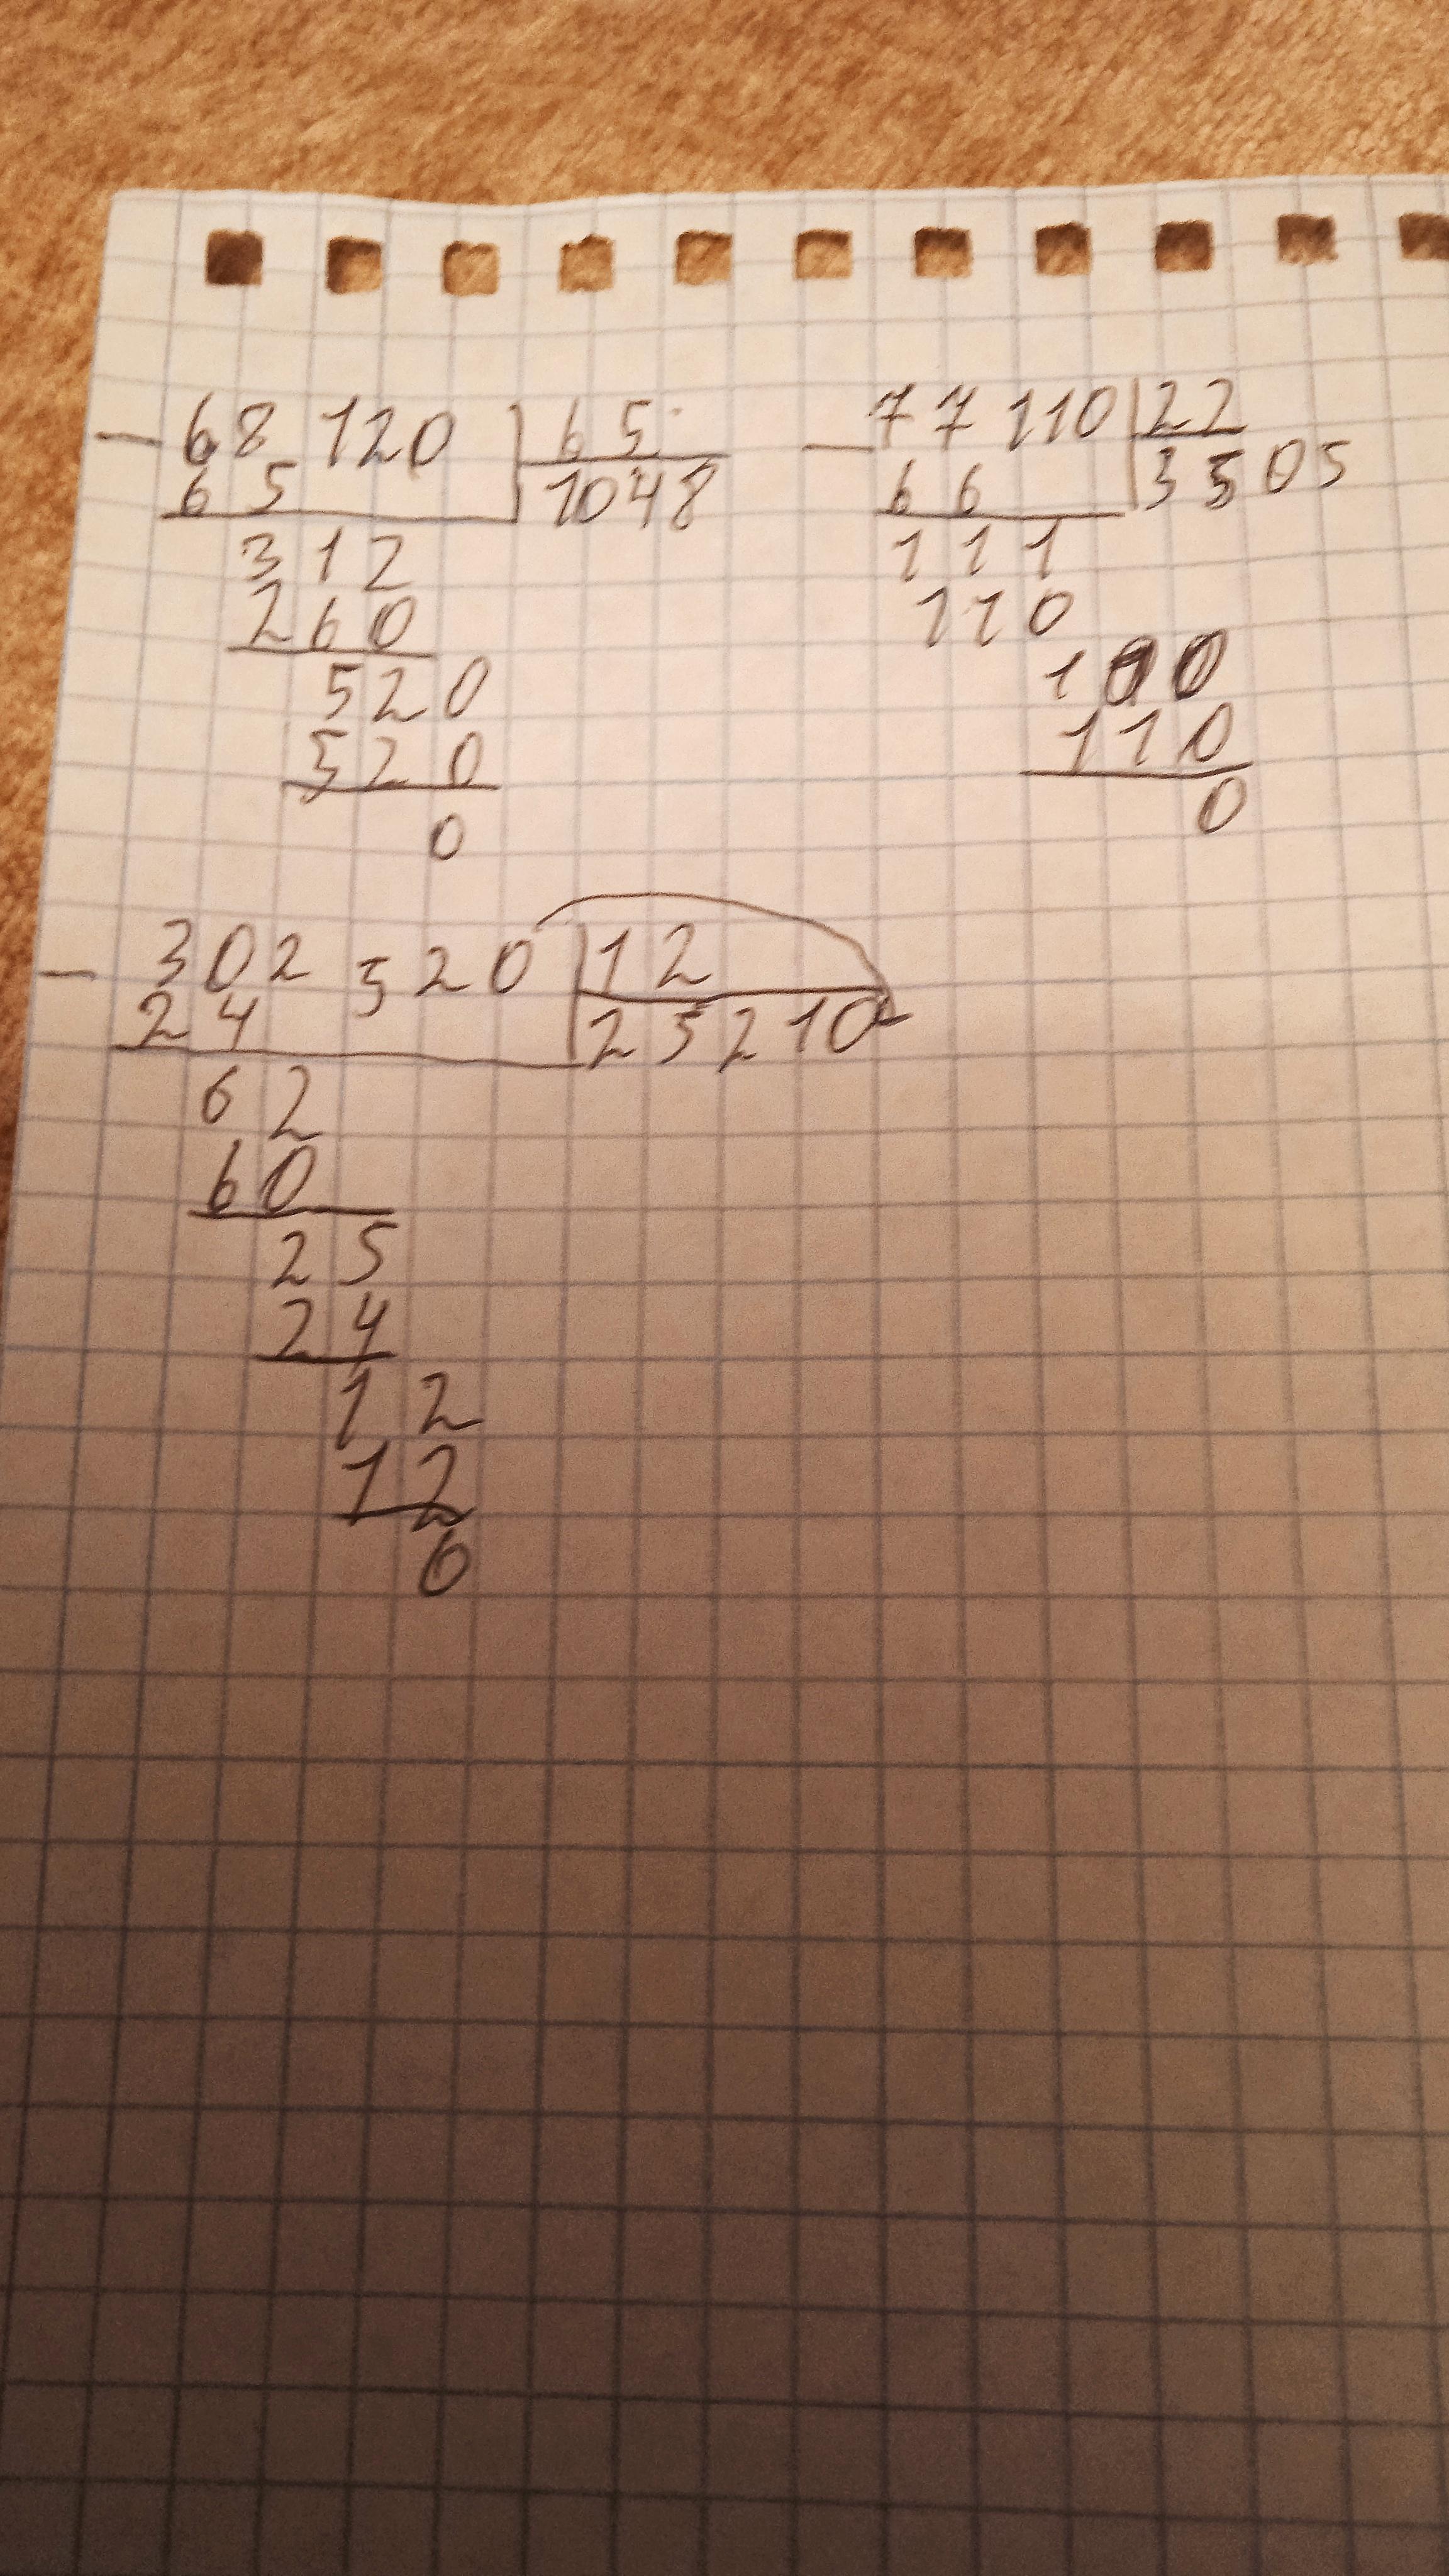 - 68 120 65
65 1048
312
260
520
520
0
- 77 110 22
66 3505
111
110
110
0
- 302 520 12
24 25210
62
60
25
24
12
12
0